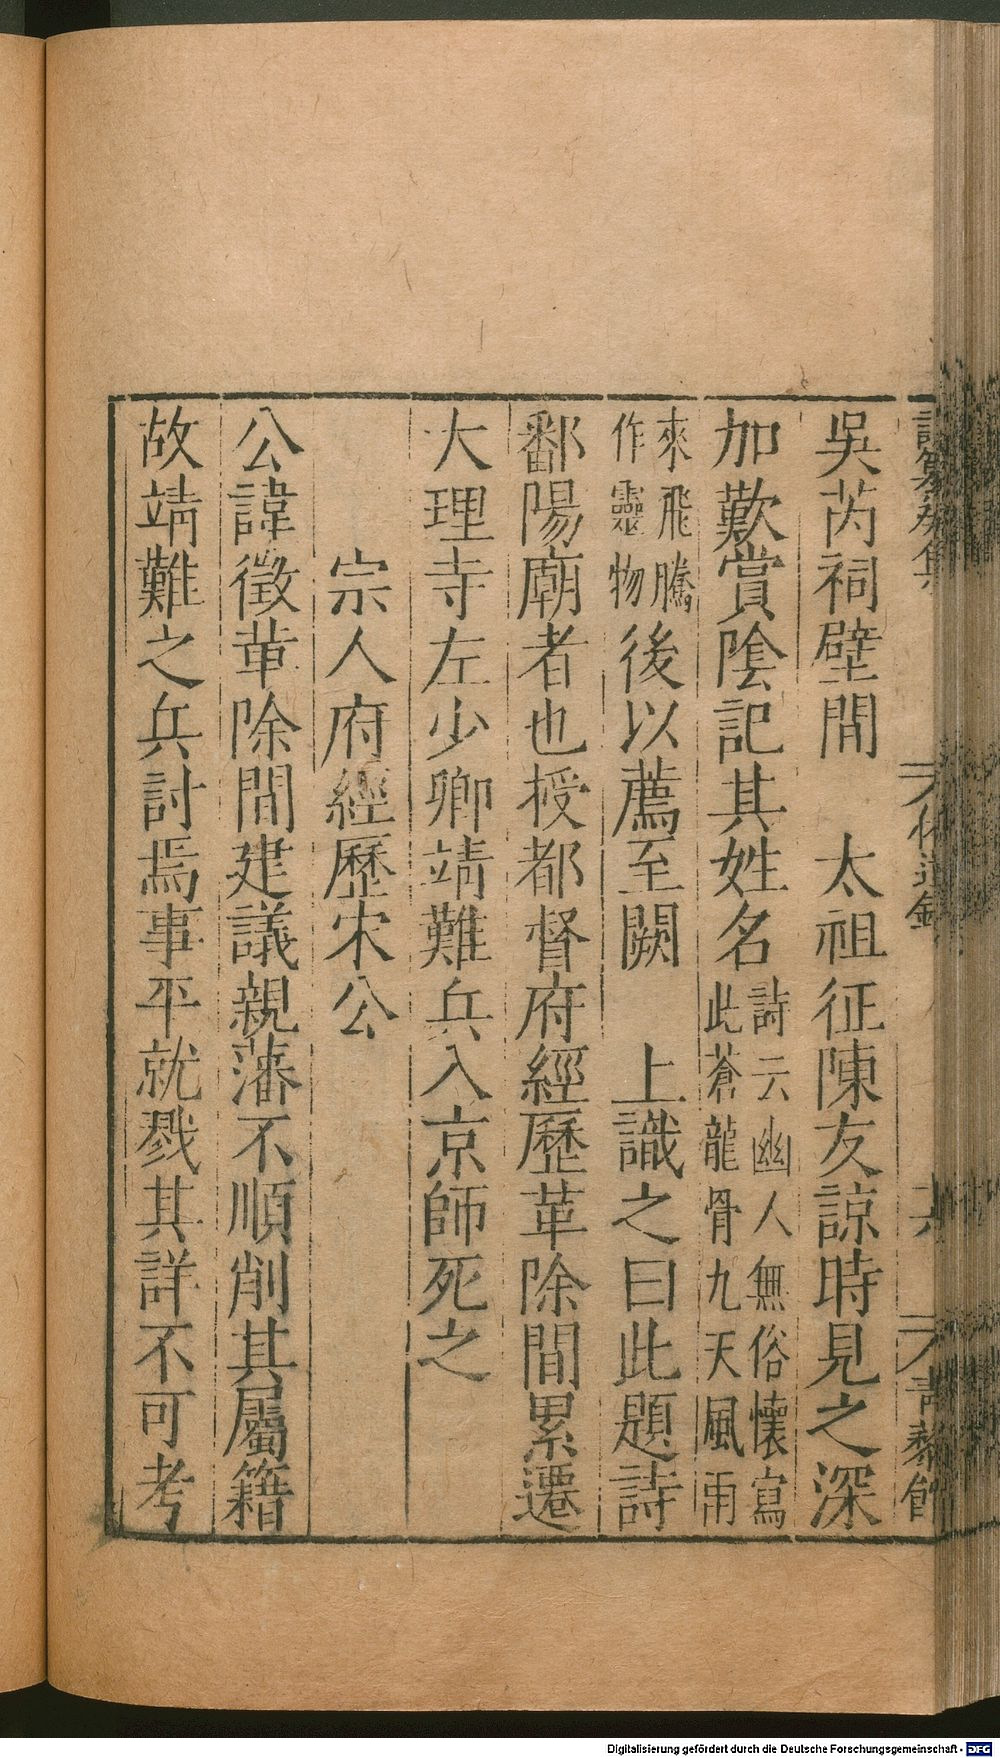 吳芮祠壁間　太祖征陳友諒時見之深
加歎賞陰記其姓名詩云幽人無俗懷寫
此蒼龍骨九天風雨
來飛騰
作靈物後以薦至闕　上識之曰此題詩
鄱陽廟者也授都督府經歷革除間累遷
大理寺左少卿靖難兵入京師死之
宗人府經歷宋公
公諱徵革除間建議親藩不順削其屬籍
故靖難之兵討焉事平就戮其詳不可考
Digitalisierung gefördert durch die Deutsche Forschungsgemeinschaft - DFG